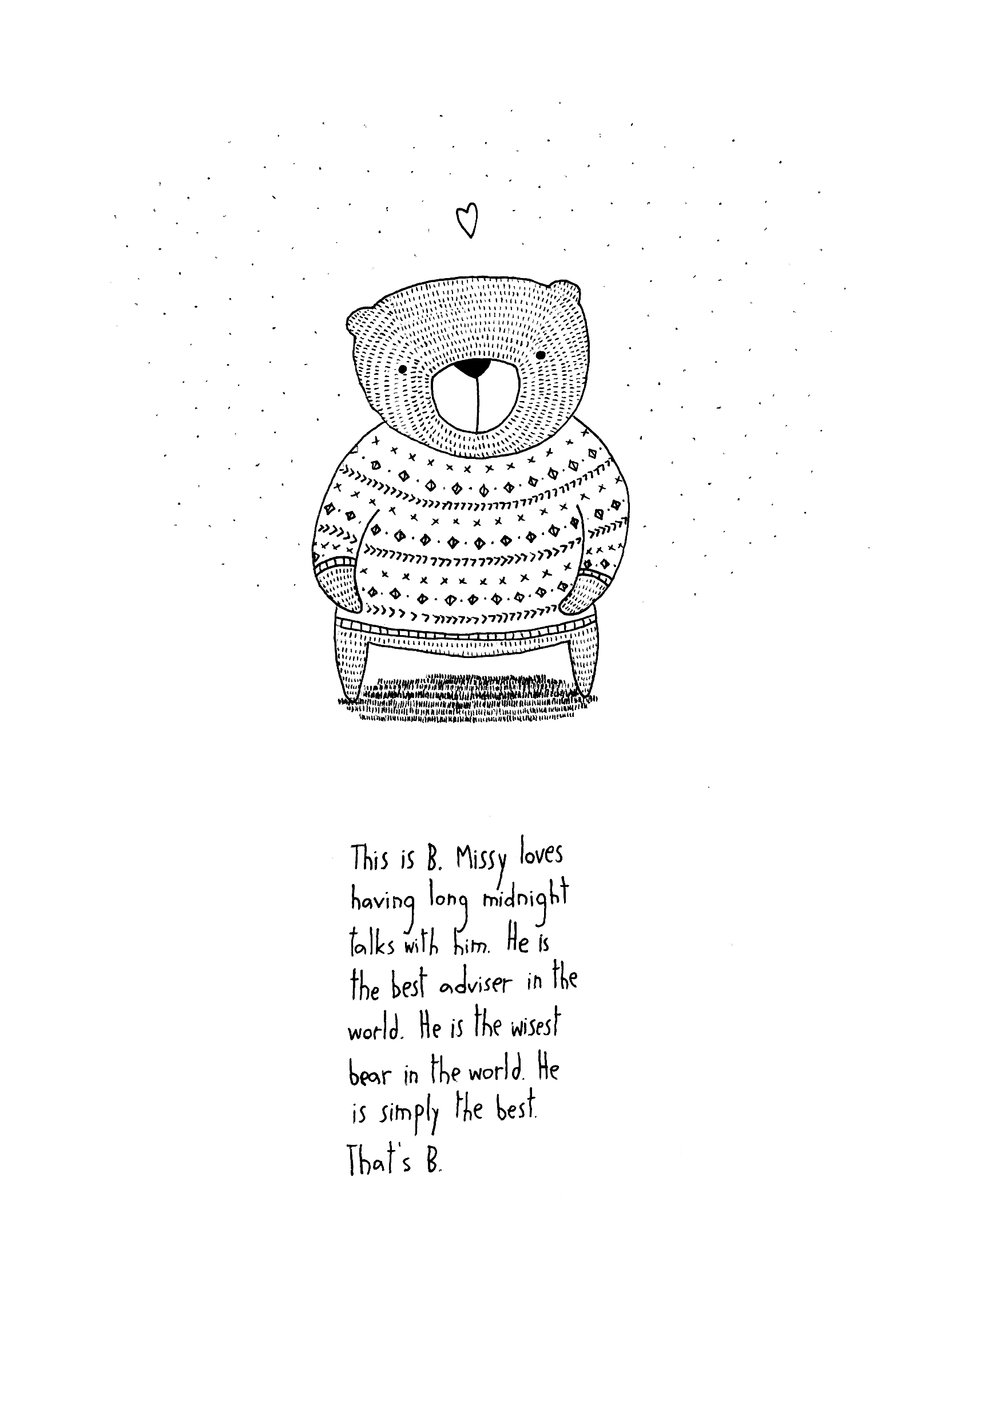 This is B. Missy loves
having long midnight
talks with him. He is
the best adviser in the
world. He is the wisest
bear in the world. He
is simply the best.
That's B.